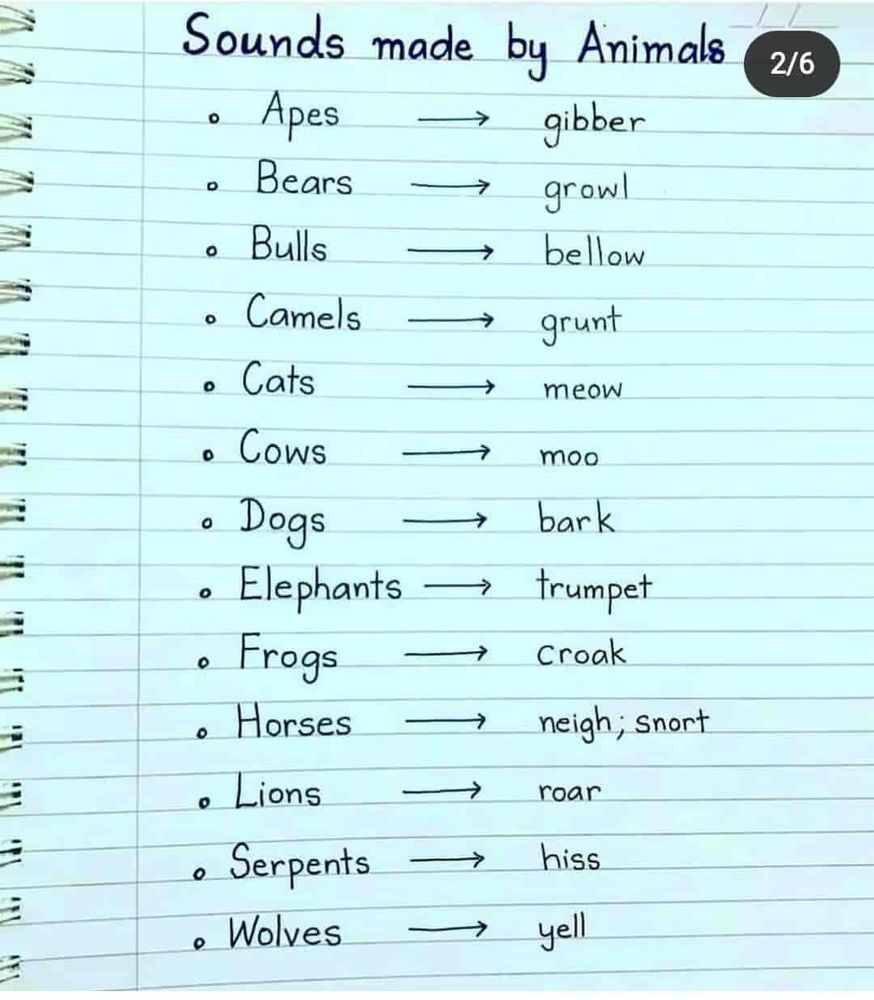 Sounds made by Animals
2/6
Apes → gibber
Bears → growl
Bulls → bellow
Camels → grunt
Cats → meow
Cows → moo
Dogs → bark
Elephants → trumpet
Frogs → croak
Horses → neigh; snort
Lions → roar
Serpents → hiss
Wolves → yell